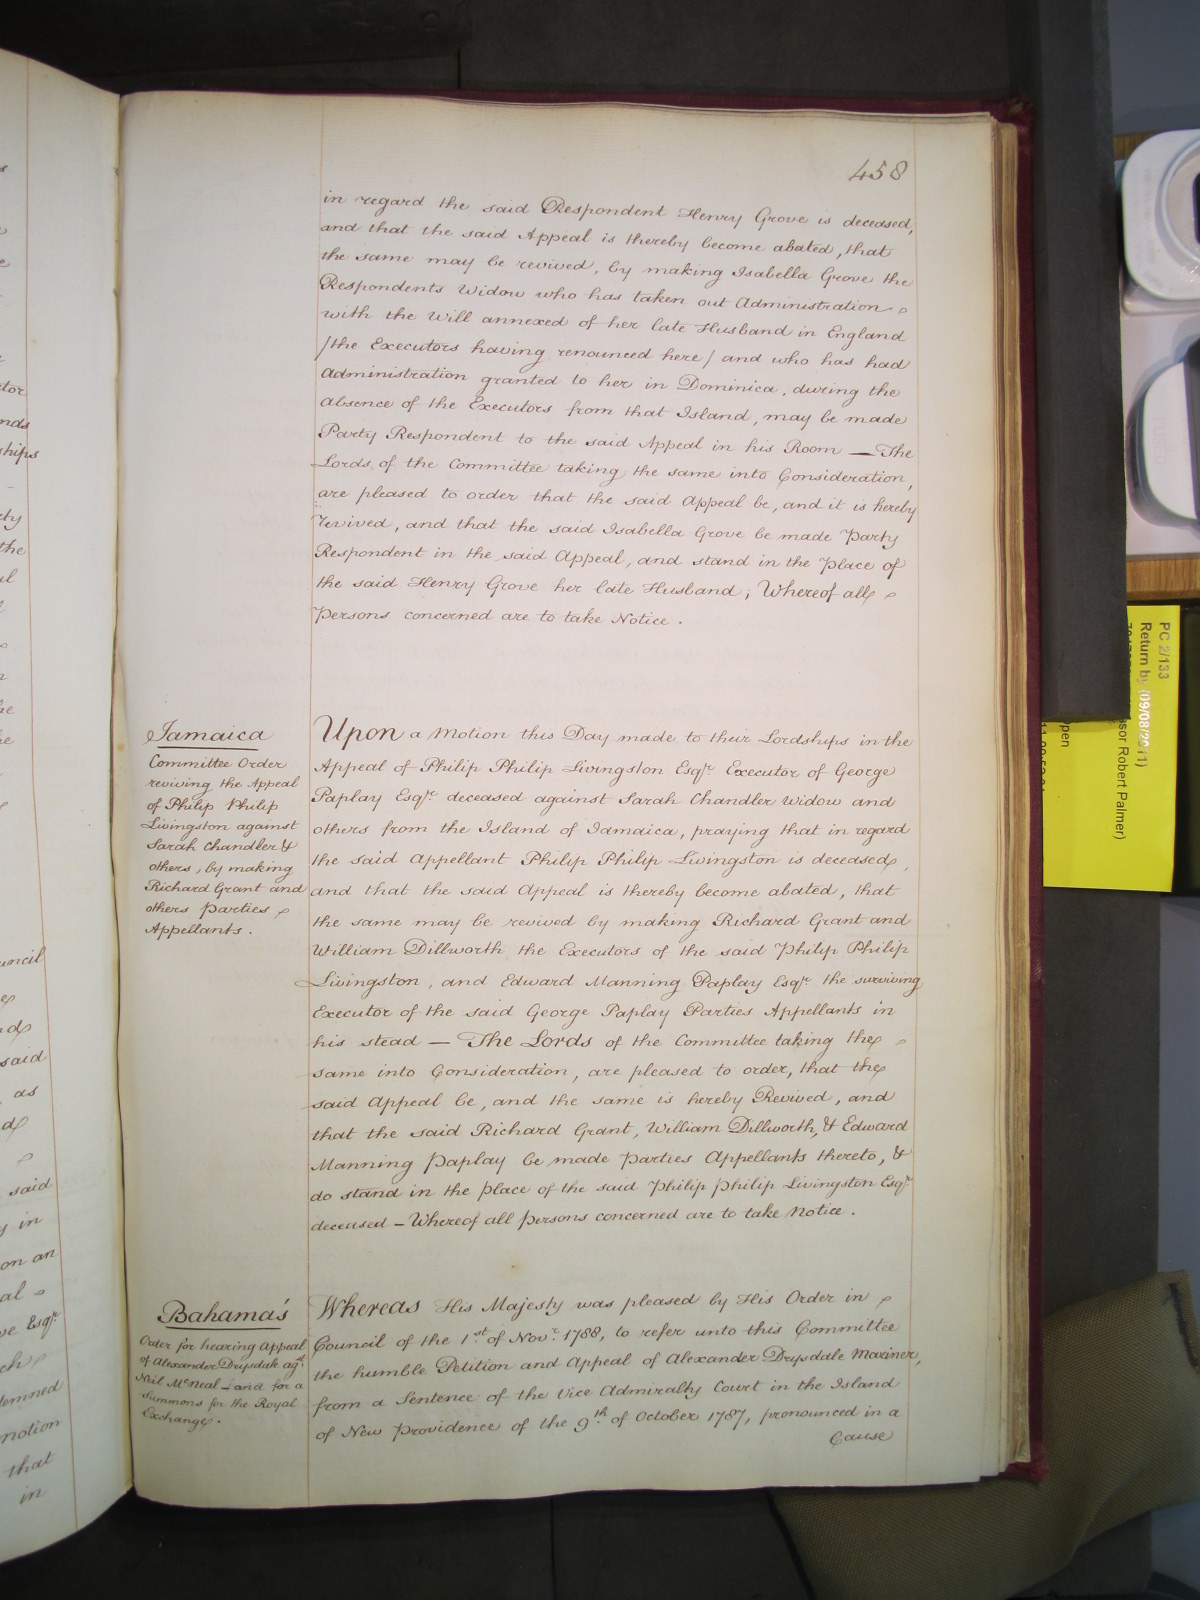 458
in regard the said Respondent Henry Grove is deceased,
and that the said Appeal is thereby become abated, that
the same may be revived, by making Isabella Grove the
Respondents Widow who has taken out Administration
with the Will annexed of her late Husband in England
/the Executors having renounced here/ and who has had
Administration granted to her in Dominica, during the
absence of the Executors from that Island, may be made
Party Respondent to the said Appeal in his Room — The
Lords of the Committee taking the same into Consideration,
are pleased to order that the said Appeal be, and it is hereby
revived, and that the said Isabella Grove be made Party
Respondent in the said Appeal, and stand in the Place of
the said Henry Grove her late Husband; Whereof all
Persons concerned are to take Notice.
Jamaica
Committee Order
reviving the Appeal
of Philip Philip
Livingston against
Sarah Chandler &
others, by making
Richard Grant and
others Parties
Appellants.
Upon a Motion this Day made to their Lordships in the
Appeal of Philip Philip Livingston Esqr. Executor of George
Paplay Esqr. deceased against Sarah Chandler Widow and
others from the Island of Jamaica, praying that in regard
the said Appellant Philip Philip Livingston is deceased,
and that the said Appeal is thereby become abated, that
the same may be revived by making Richard Grant and
William Dillworth the Executors of the said Philip Philip
Livingston, and Edward Manning Paplay Esqr. the surviving
Executor of the said George Paplay Parties Appellants in
his stead — The Lords of the Committee taking the
same into Consideration, are pleased to order, that the
said Appeal be, and the same is hereby Revived, and
that the said Richard Grant, William Dillworth, & Edward
Manning Paplay be made Parties Appellants thereto, &
do stand in the Place of the said Philip Philip Livingston Esqr.
deceased – Whereof all Persons concerned are to take Notice.
Bahama's
Order for hearing Appeal
of Alexander Drysdale agst.
Neil McNeal – and for a
Summons for the Royal
Exchange.
Whereas His Majesty was pleased by His Order in
Council of the 1st. of Novr. 1788, to refer unto this Committee
the humble Petition and Appeal of Alexander Drysdale Mariner,
from a Sentence of the Vice Admiralty Court in the Island
of New Providence of the 9th. of October 1787, pronounced in a
Cause
PC 2/133
Return by (09/08/2011)
ssor Robert Palmer)